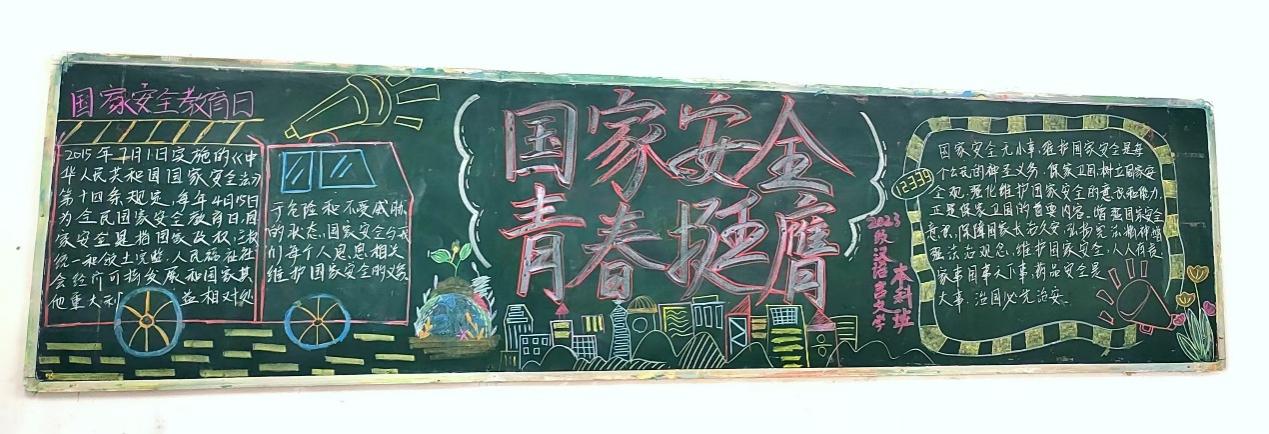 国家安全教育日
2015年7月1日实施的《中
华人民共和国国家安全法》
第十四条规定,每年4月15日
为全民国家安全教育日.国
家安全是指国家政权、主权
统一和领土完整、人民福祉、社
会经济可持续发展和国家其
他重大利益相对处
于危险和不受威胁
的状态,国家安全与我
们每个人息息相关
维护国家安全的
国家安全
青春挺膺
2023级汉语言文学
本科班
12339
国家安全无小事,维护国家安全是每
个公民的神圣义务.保家卫国,树立国家安
全观,强化维护国家安全的意识和能力,
正是保家卫国的重要内容.增强国家安全
意识,保障国家长治久安,弘扬宪法精神增
强法治观念,维护国家安全,人人有责,
家事国事天下事,安全是
大事,治国必先治安.